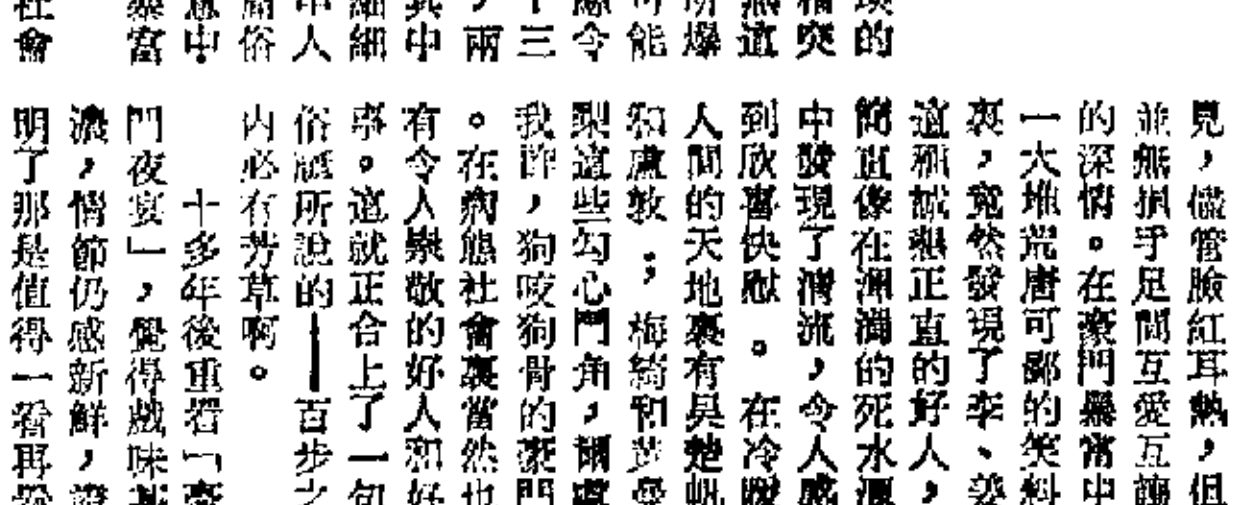 的
稽突
無這
所爆
可能
令
十三
，兩
其中
細細
中人
庸俗
意中
暴富
社會
見，儘管臉紅耳熱，但
並無損乎足間互愛互讓
的深情。在豪門暴富中
一大堆荒唐可鄙的笑料
裏，竟然發現了李、姜
這種誠懇正直的好人，
簡直像在溷濁的死水潭
中發現了清流，令人感
到欣喜快慰。在冷暖
人間的天地裏有吳楚帆
和盧敦；梅綺和黃曼
梨這些勾心鬥角，爾虞
我詐，狗咬狗骨的豪門
。在病態社會裏當然也
有令人崇敬的好人和好
事。這就正合上了一句
俗語所說的——百步之
內必有芳草啊。
十多年後重看「豪
門夜宴」，覺得戲味甚
濃，情節仍感新鮮，證
明了那是值得一看再看